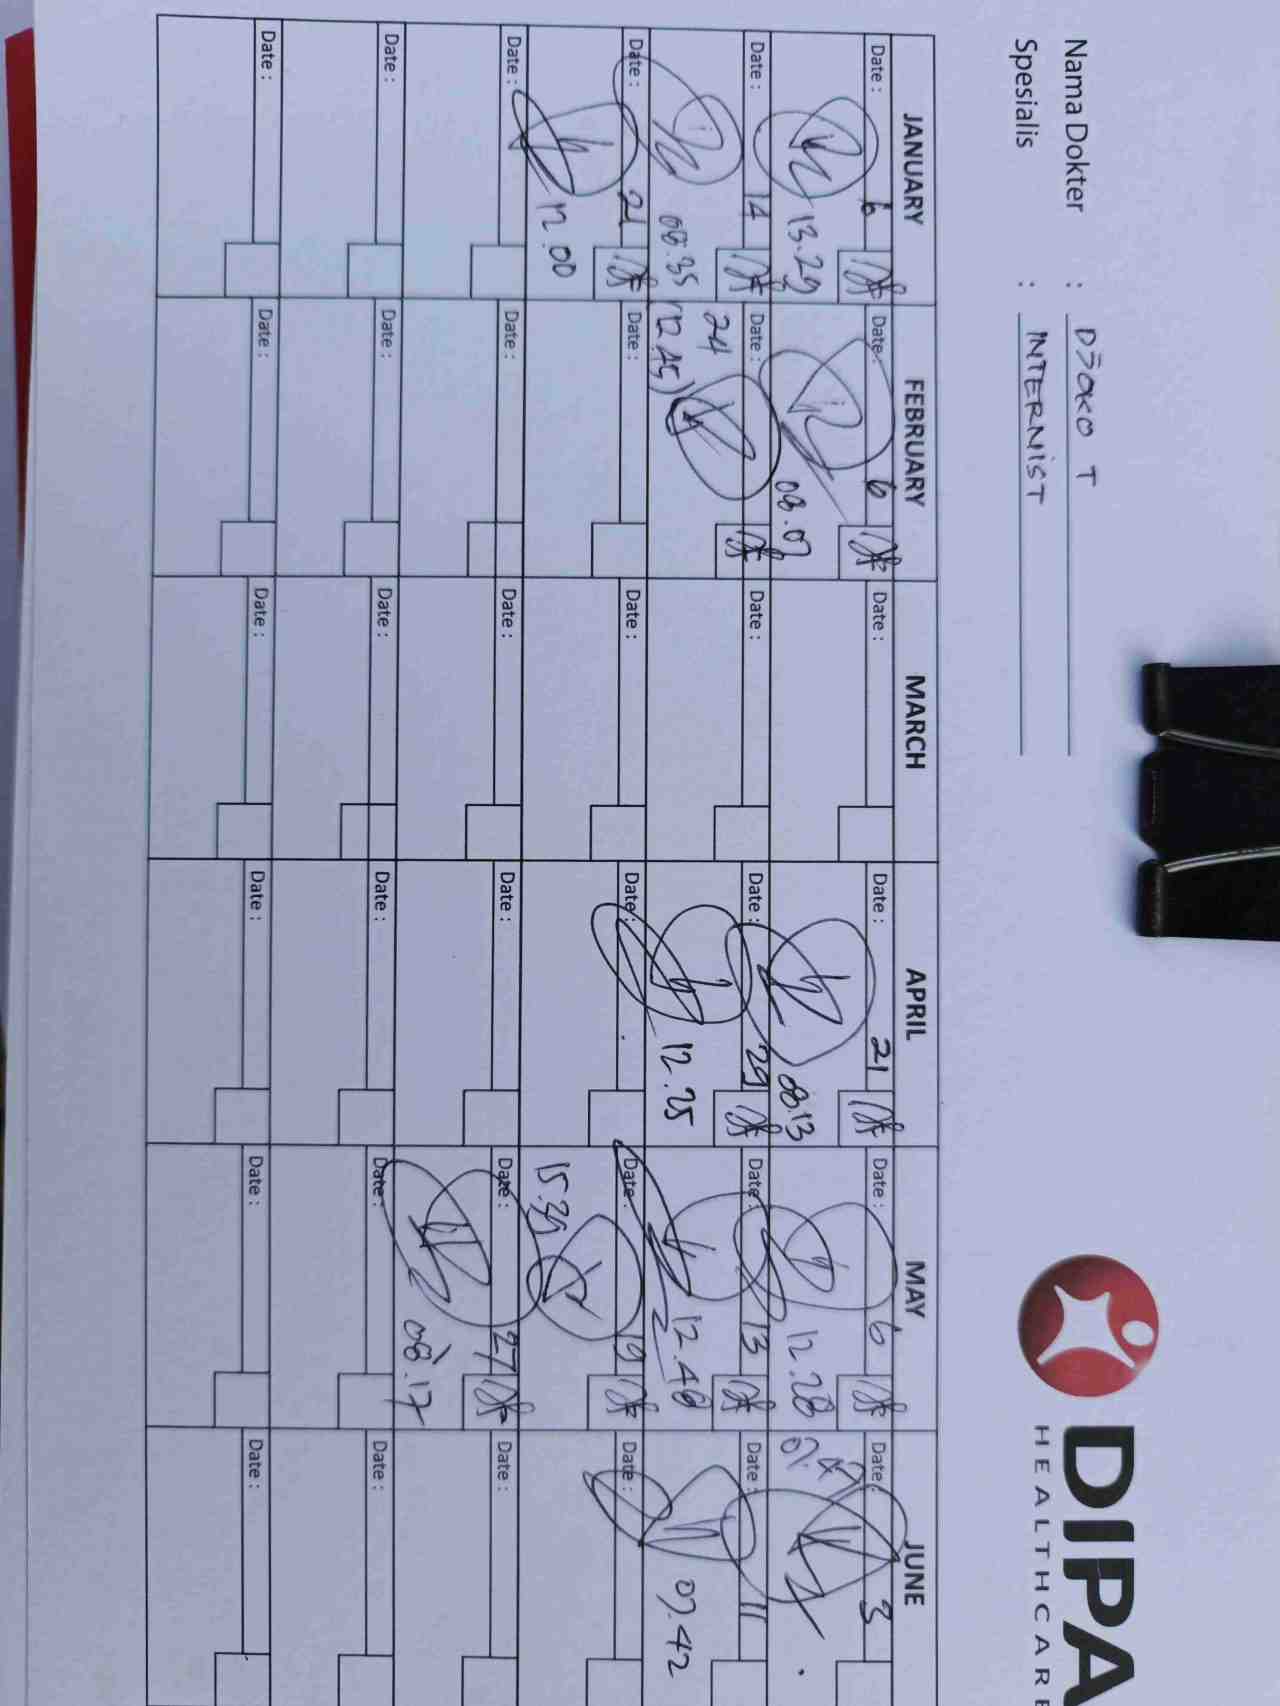 DIPA
HEALTHCARE
Nama Dokter : DJOKO T
Spesialis : INTERNIST
JANUARY FEBRUARY MARCH APRIL MAY JUNE
Date : 6 Date : 6 Date : Date : 21 Date : 6 Date : 3
13.29 08.07 08.13 12.28 07.47
Date : 14 Date : 24 Date : Date : 29 Date : 13 Date : 11
08.35 (12.45) 12.25 12.48 07.42
Date : 21 Date : Date : Date : Date : 19 Date :
12.00 15.39
Date : Date : Date : Date : Date : 27 Date :
08.17
Date : Date : Date : Date : Date : Date :
Date : Date : Date : Date : Date : Date :